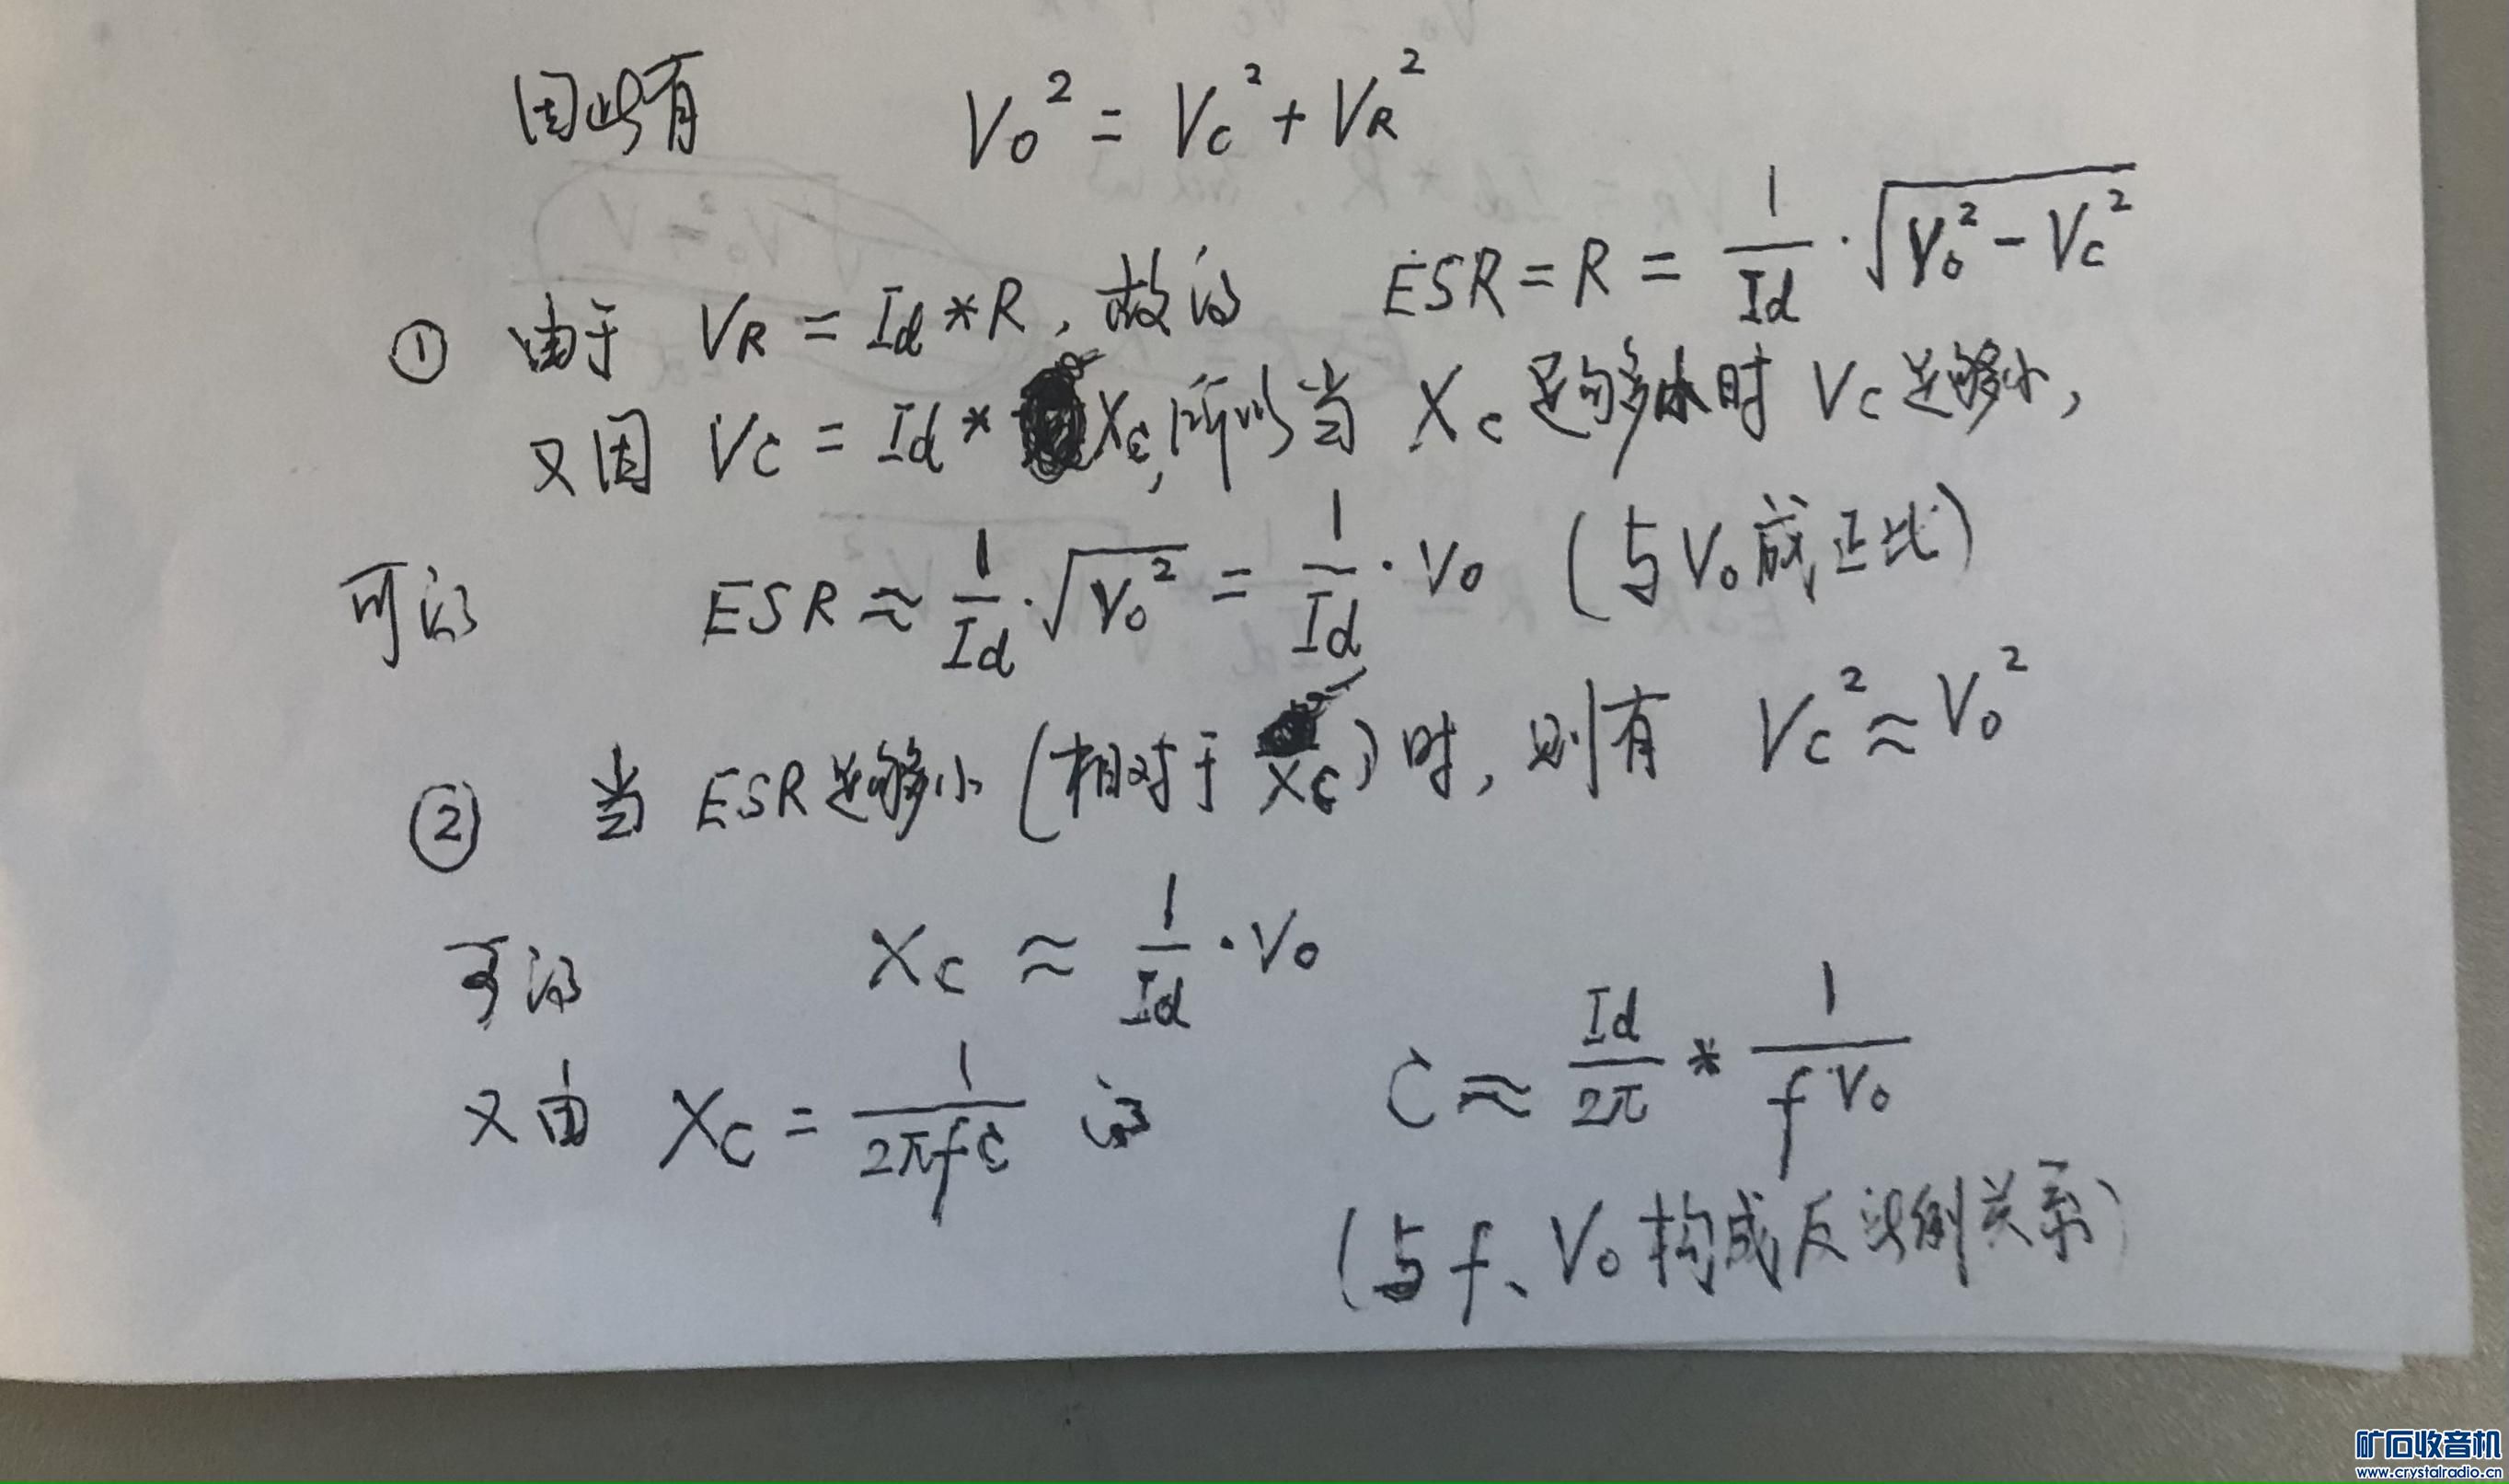 因此有 V₀² = Vc² + VR²
① 由于 VR = Id * R, 故得 ESR = R = 1/Id · √(V₀² - Vc²)
又因 Vc = Id * Xc, 所以当 Xc 足够小时 Vc 足够小,
可得 ESR ≈ 1/Id · √(V₀²) = 1/Id · V₀ (与V₀成正比)
② 当 ESR 足够小 (相对于 Xc) 时, 则有 Vc² ≈ V₀²
可得 Xc ≈ 1/Id · V₀
又由 Xc = 1/(2πfC) 得 C ≈ Id/2π * 1/(f·V₀)
(与 f、V₀ 构成反比例关系)
矿石收音机
www.crystalradio.cn